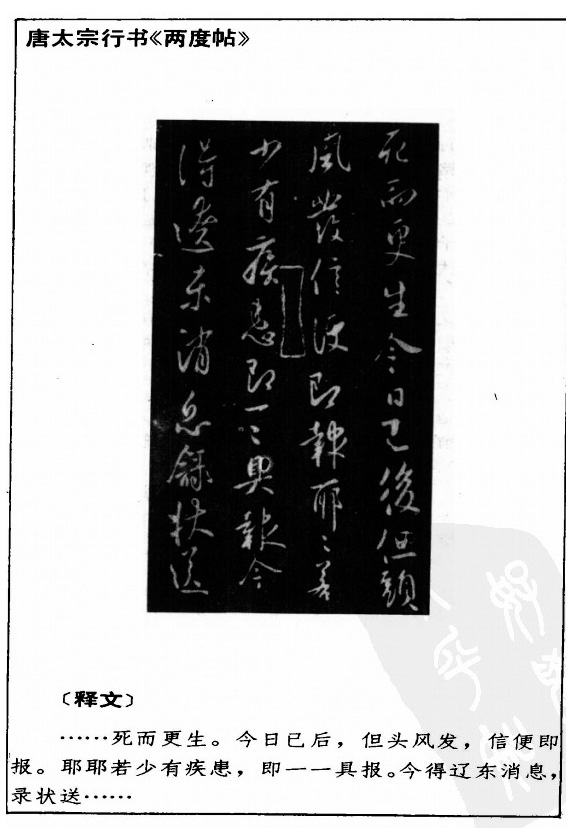 唐太宗行书《两度帖》
死而更生今日已後但頭
風發信便即報耶〻若
少有疾患即一〻具報今
得遼东消息録状送
〔释文〕
……死而更生。今日已后，但头风发，信便即
报。耶耶若少有疾患，即一一具报。今得辽东消息，
录状送……